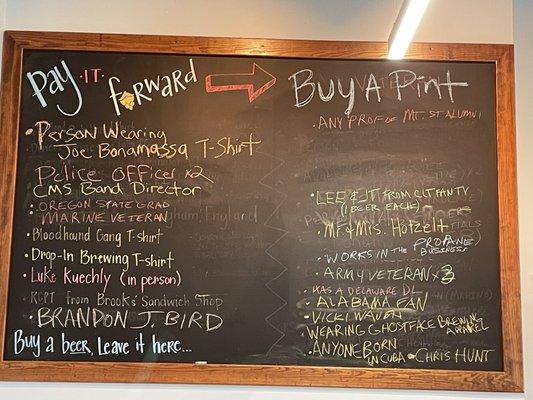 Pay ·IT· forward
Buy A Pint
· Person Wearing
Joe Bonamassa T-Shirt
· Police OFFICER x2
CMS Band Director
· OREGON STATE GRAD
· MARINE VETERAN
· Bloodhound Gang T-shirt
· Drop-In Brewing T-shirt
· Luke Kuechly (in person)
from Brooks' Sandwich Shop
· BRANDON J. BIRD
Buy a beer, Leave it here...
· ANY PROF OF MT. ST ALUMNI
· LEE & JT FROM
(1 BEER EACH)
· Mr & Mrs. Hotzelt
· WORKS IN THE PROPANE
BUSINESS
· ARMY VETERAN x3
· HAS A DELAWARE DL
· ALABAMA FAN
· VICKI
· WEARING GHOSTFACE BREWING
APPAREL
· ANYONE BORN
IN CUBA · CHRIS HUNT